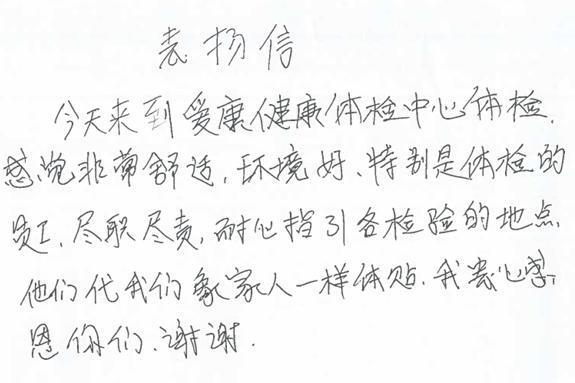 表扬信
今天来到爱康健康体检中心体检.
感觉非常舒适,环境好、特别是体检的
员工、尽职尽责,耐心指引各检验的地点,
他们代我们象家人一样体贴.我衷心感
恩你们、谢谢.